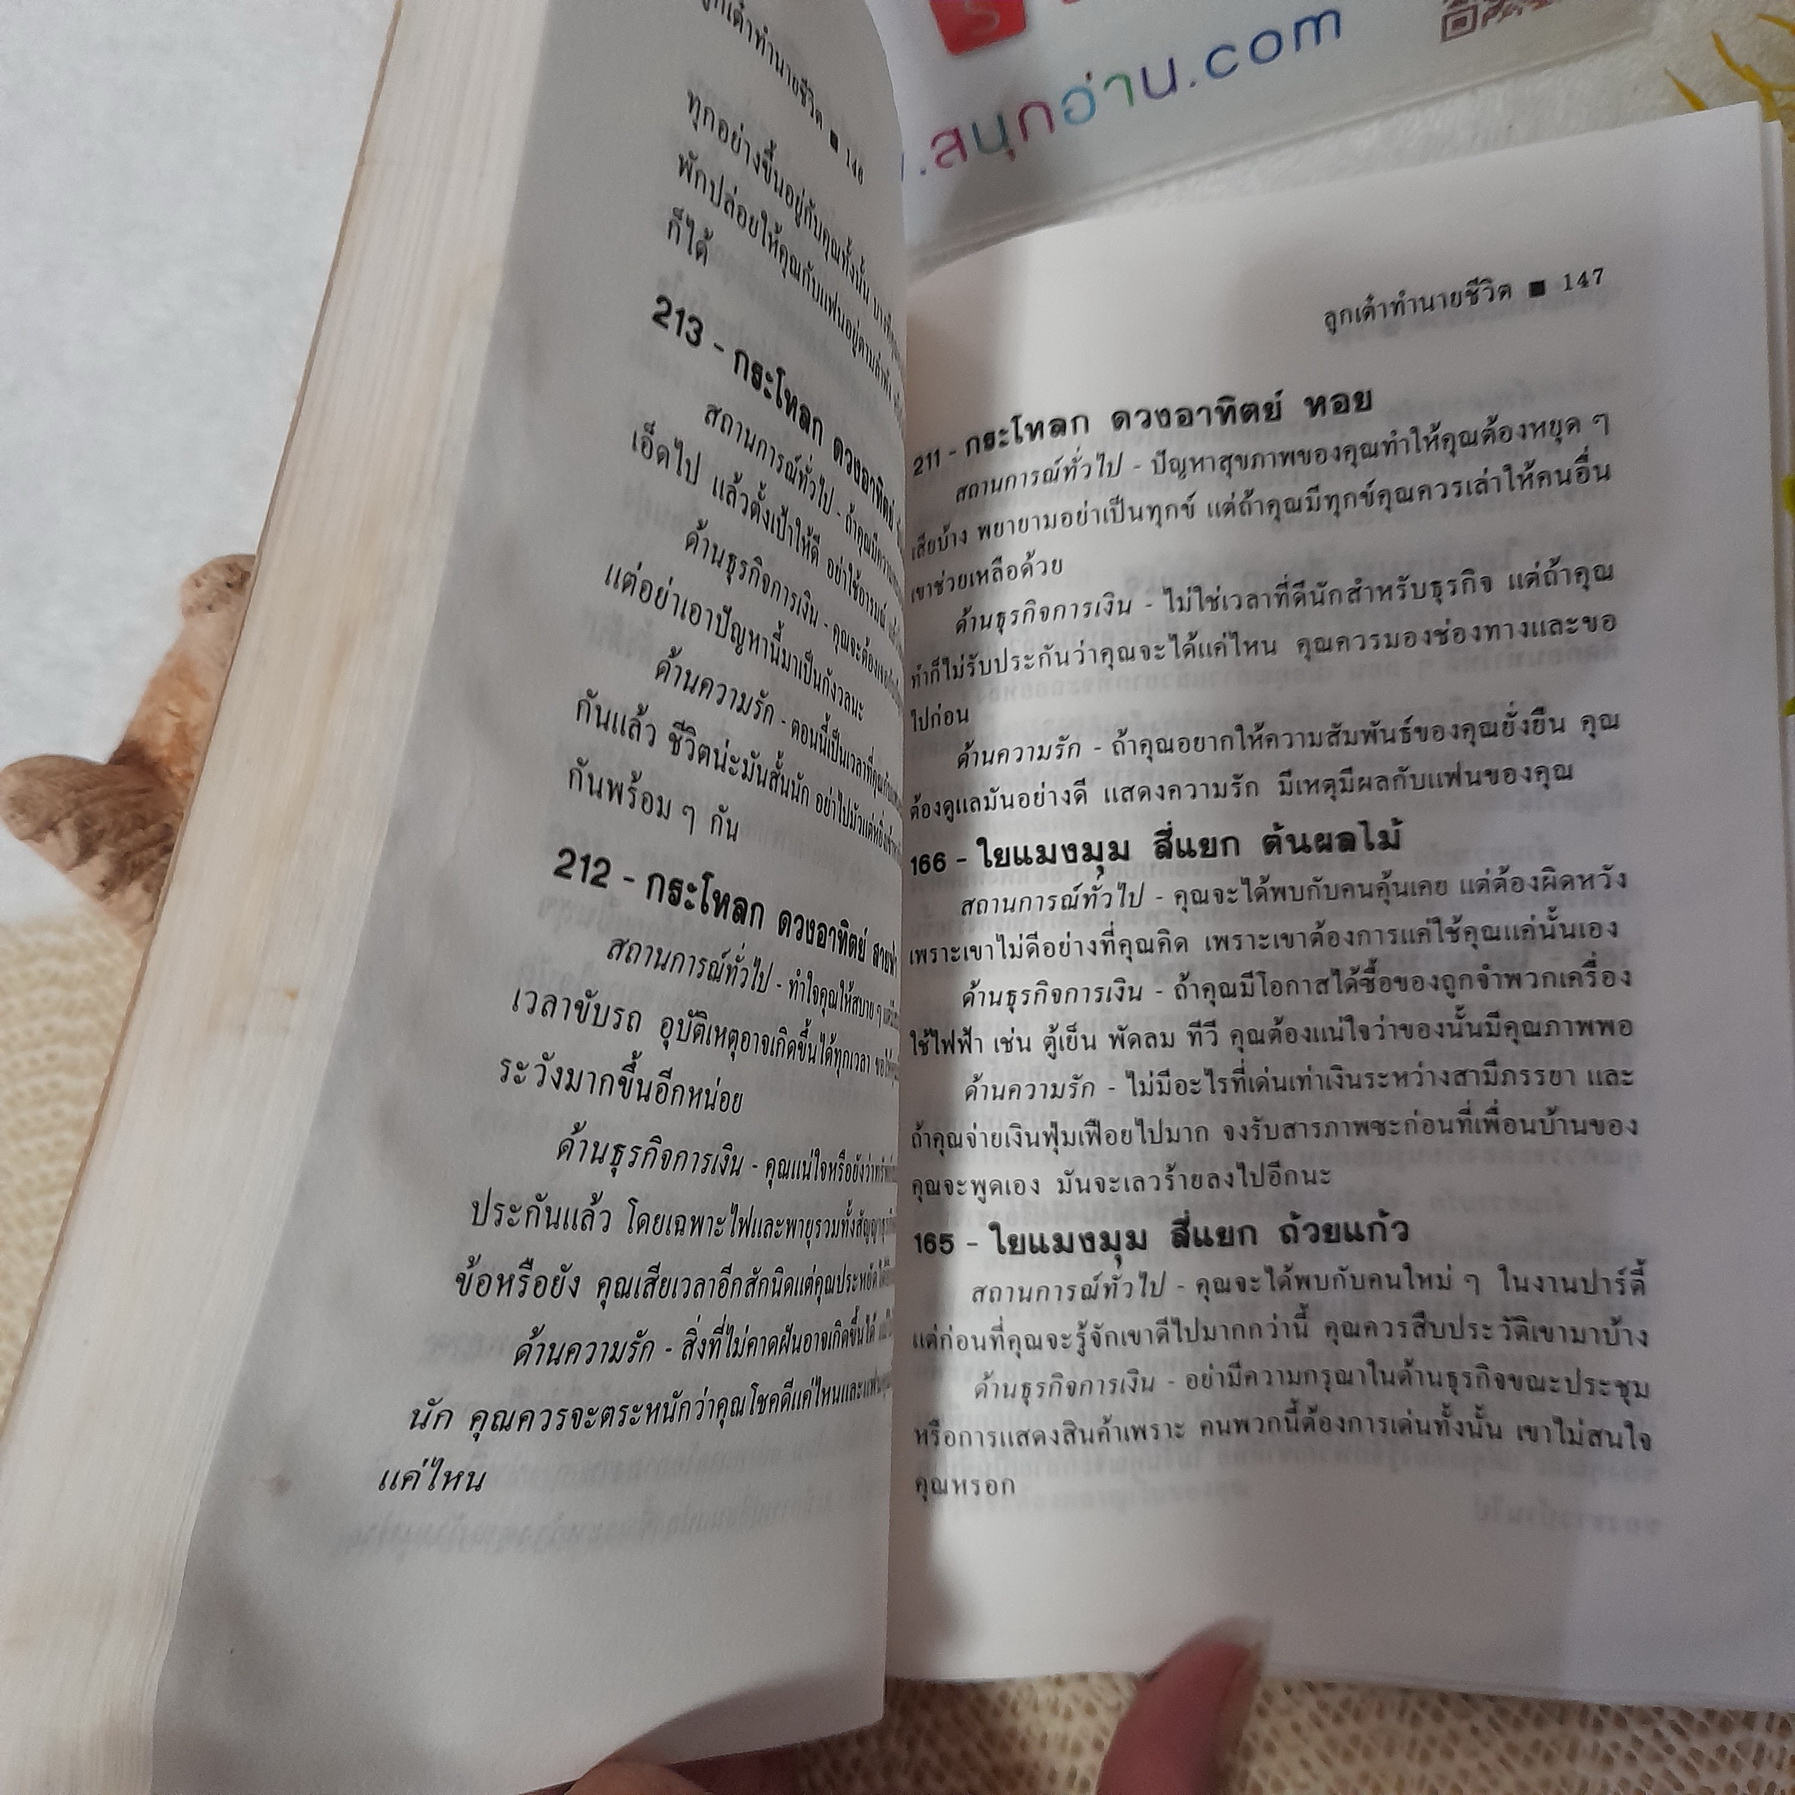 .สนุกอ่าน.com
ลูกเต๋าทำนายชีวิต ■ 146
ทุกอย่างขึ้นอยู่กับคุณทั้งนั้น
พักปล่อยให้คุณกับแฟนอยู่ตามลำพัง
ก็ได้
213 - กระโหลก ดวงอาทิตย์
สถานการณ์ทั่วไป - ถ้าคุณมีความ
เอ็ดไป แล้วตั้งเป้าให้ดี อย่าใช้อารมณ์
ด้านธุรกิจการเงิน - คุณจะต้อง
แต่อย่าเอาปัญหานี้มาเป็นกังวลนะ
ด้านความรัก - ตอนนี้เป็นเวลาที่คุณ
กันแล้ว ชีวิตน่ะมันสั้นนัก อย่าไปมัวแต่หยิ่ง
กันพร้อม ๆ กัน
212 - กระโหลก ดวงอาทิตย์ สายฟ้า
สถานการณ์ทั่วไป - ทำใจคุณให้สบาย ๆ
เวลาขับรถ อุบัติเหตุอาจเกิดขึ้นได้ทุกเวลา ขอให้
ระวังมากขึ้นอีกหน่อย
ด้านธุรกิจการเงิน - คุณแน่ใจหรือยังว่า
ประกันแล้ว โดยเฉพาะไฟและพายุรวมทั้งสัญญา
ข้อหรือยัง คุณเสียเวลาอีกสักนิดแต่คุณประหยัด
ด้านความรัก - สิ่งที่ไม่คาดฝันอาจเกิดขึ้นได้
นัก คุณควรจะตระหนักว่าคุณโชคดีแค่ไหนและ
แค่ไหน
ลูกเต๋าทำนายชีวิต ■ 147
211 - กระโหลก ดวงอาทิตย์ หอย
สถานการณ์ทั่วไป - ปัญหาสุขภาพของคุณทำให้คุณต้องหยุด ๆ
เสียบ้าง พยายามอย่าเป็นทุกข์ แต่ถ้าคุณมีทุกข์คุณควรเล่าให้คนอื่น
เขาช่วยเหลือด้วย
ด้านธุรกิจการเงิน - ไม่ใช่เวลาที่ดีนักสำหรับธุรกิจ แต่ถ้าคุณ
ทำก็ไม่รับประกันว่าคุณจะได้แค่ไหน คุณควรมองช่องทางและขอ
ไปก่อน
ด้านความรัก - ถ้าคุณอยากให้ความสัมพันธ์ของคุณยั่งยืน คุณ
ต้องดูแลมันอย่างดี แสดงความรัก มีเหตุมีผลกับแฟนของคุณ
166 - ใยแมงมุม สี่แยก ต้นผลไม้
สถานการณ์ทั่วไป - คุณจะได้พบกับคนคุ้นเคย แต่ต้องผิดหวัง
เพราะเขาไม่ดีอย่างที่คุณคิด เพราะเขาต้องการแค่ใช้คุณแค่นั้นเอง
ด้านธุรกิจการเงิน - ถ้าคุณมีโอกาสได้ซื้อของถูกจำพวกเครื่อง
ใช้ไฟฟ้า เช่น ตู้เย็น พัดลม ทีวี คุณต้องแน่ใจว่าของนั้นมีคุณภาพพอ
ด้านความรัก - ไม่มีอะไรที่เด่นเท่าเงินระหว่างสามีภรรยา และ
ถ้าคุณจ่ายเงินฟุ่มเฟือยไปมาก จงรับสารภาพซะก่อนที่เพื่อนบ้านของ
คุณจะพูดเอง มันจะเลวร้ายลงไปอีกนะ
165 - ใยแมงมุม สี่แยก ถ้วยแก้ว
สถานการณ์ทั่วไป - คุณจะได้พบกับคนใหม่ ๆ ในงานปาร์ตี้
แต่ก่อนที่คุณจะรู้จักเขาดีไปมากกว่านี้ คุณควรสืบประวัติเขามาบ้าง
ด้านธุรกิจการเงิน - อย่ามีความกรุณาในด้านธุรกิจขณะประชุม
หรือการแสดงสินค้าเพราะ คนพวกนี้ต้องการเด่นทั้งนั้น เขาไม่สนใจ
คุณหรอก